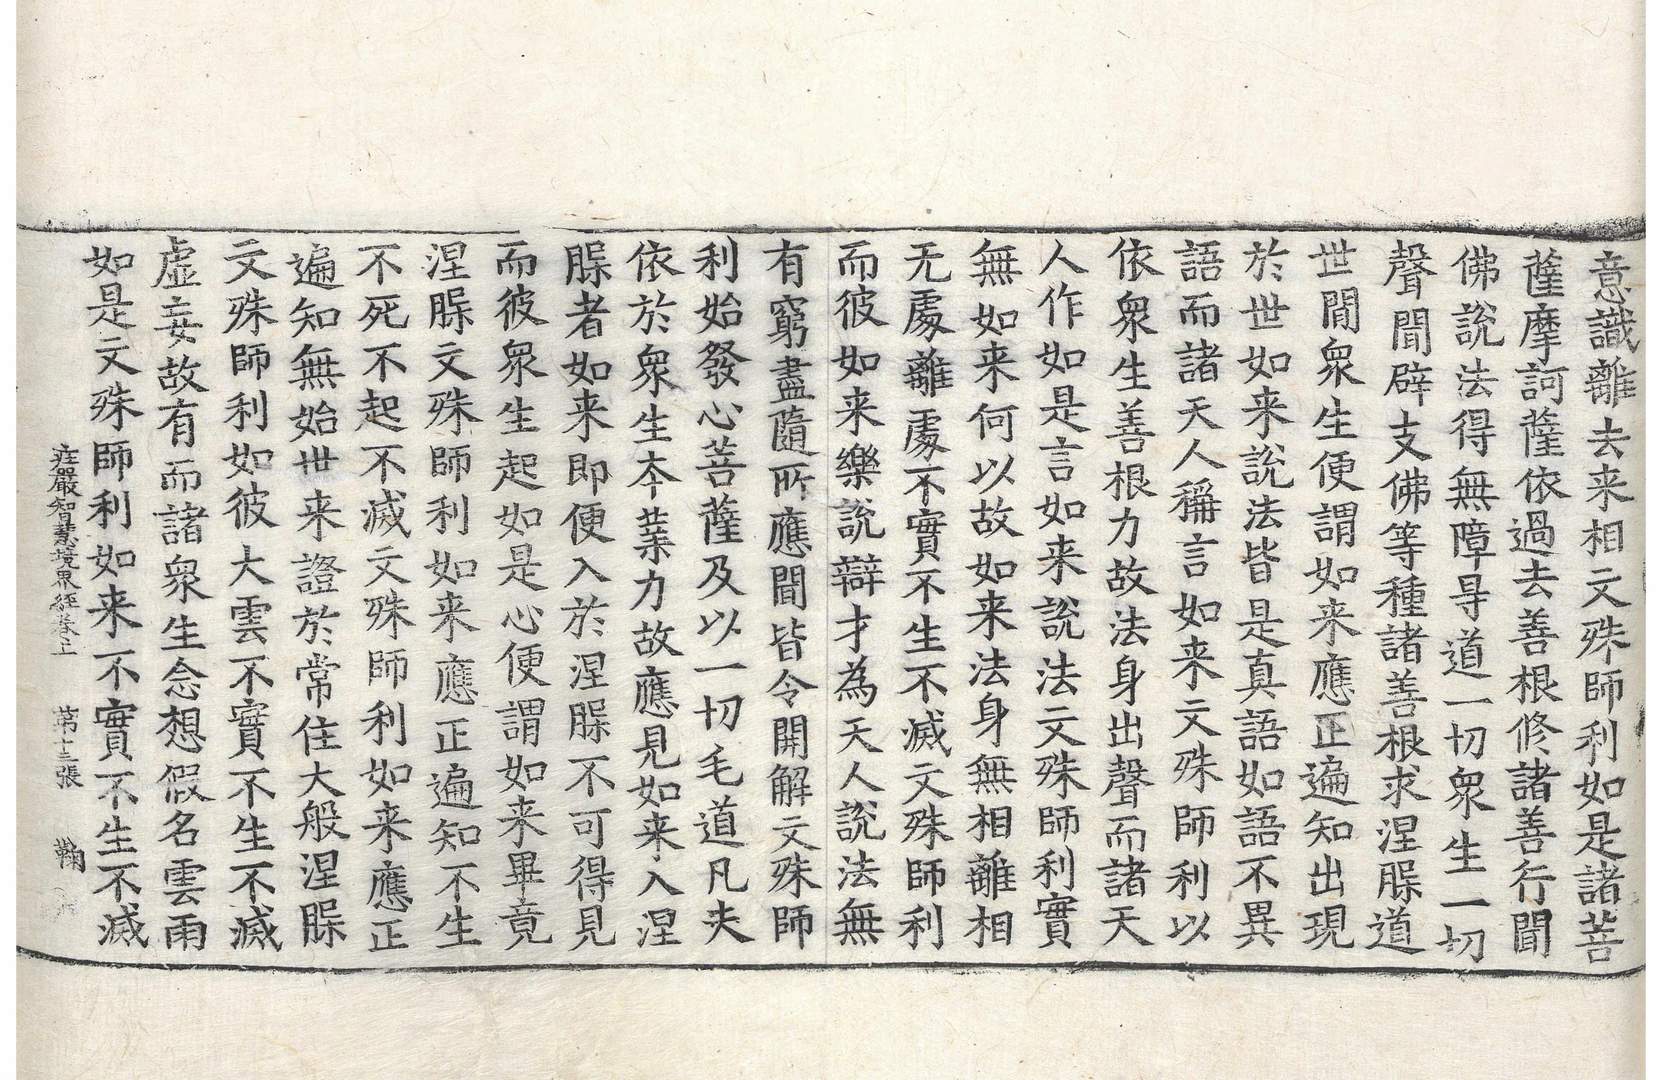 意識離去来相文殊師利如是諸菩
薩摩訶薩依過去善根修諸善行聞
佛說法得無障㝵道一切衆生一切
聲聞辟支佛等種諸善根求涅䏶道
世間衆生便謂如来應正遍知出現
於世如来說法皆是真語如語不異
語而諸天人稱言如来文殊師利以
依衆生善根力故法身出聲而諸天
人作如是言如来說法文殊師利實
無如来何以故如来法身無相離相
无處離處不實不生不滅文殊師利
而彼如来樂說辯才為天人說法無
有窮盡隨所應聞皆令開解文殊師
利始發心菩薩及以一切毛道凡夫
依於衆生夲業力故應見如来入涅
䏶者如来即便入於涅䏶不可得見
而彼衆生起如是心便謂如来畢竟
涅䏶文殊師利如来應正遍知不生
不死不起不滅文殊師利如来應正
遍知無始世来證於常住大般涅䏶
文殊師利如彼大雲不實不生不滅
虛妄故有而諸衆生念想假名雲雨
如是文殊師利如来不實不生不滅
庄嚴智慧境界經卷上 苐十三張 鞠